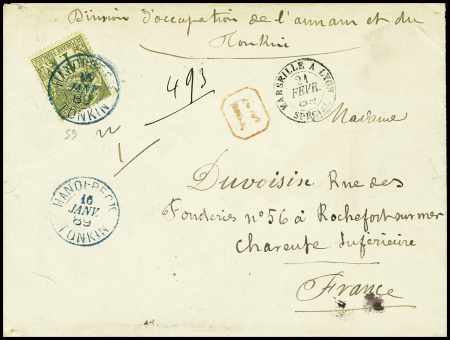 Division d'occupation de l'annam et du
Tonkin
HANOI
16
JANV.
89
TONKIN
493
R
MARSEILLE A LYON
21
FEVR.
89
SPECIAL
Madame
59
HANOI
16
JANV.
89
TONKIN
Duvoisin Rue des
Fonderies n° 56 à Rochefort-sur-mer
Charente Inférieure
France